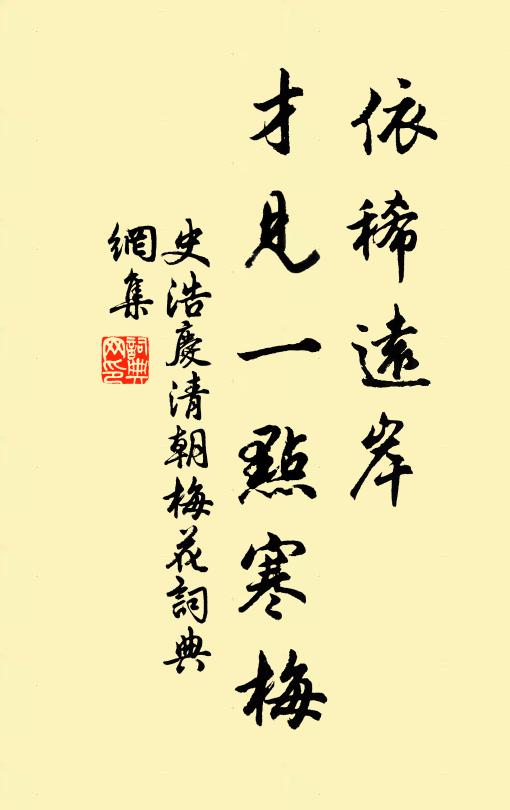 依稀遠岸
才見一點寒梅
史浩慶清朝梅花詞典
網集
詞典
网印